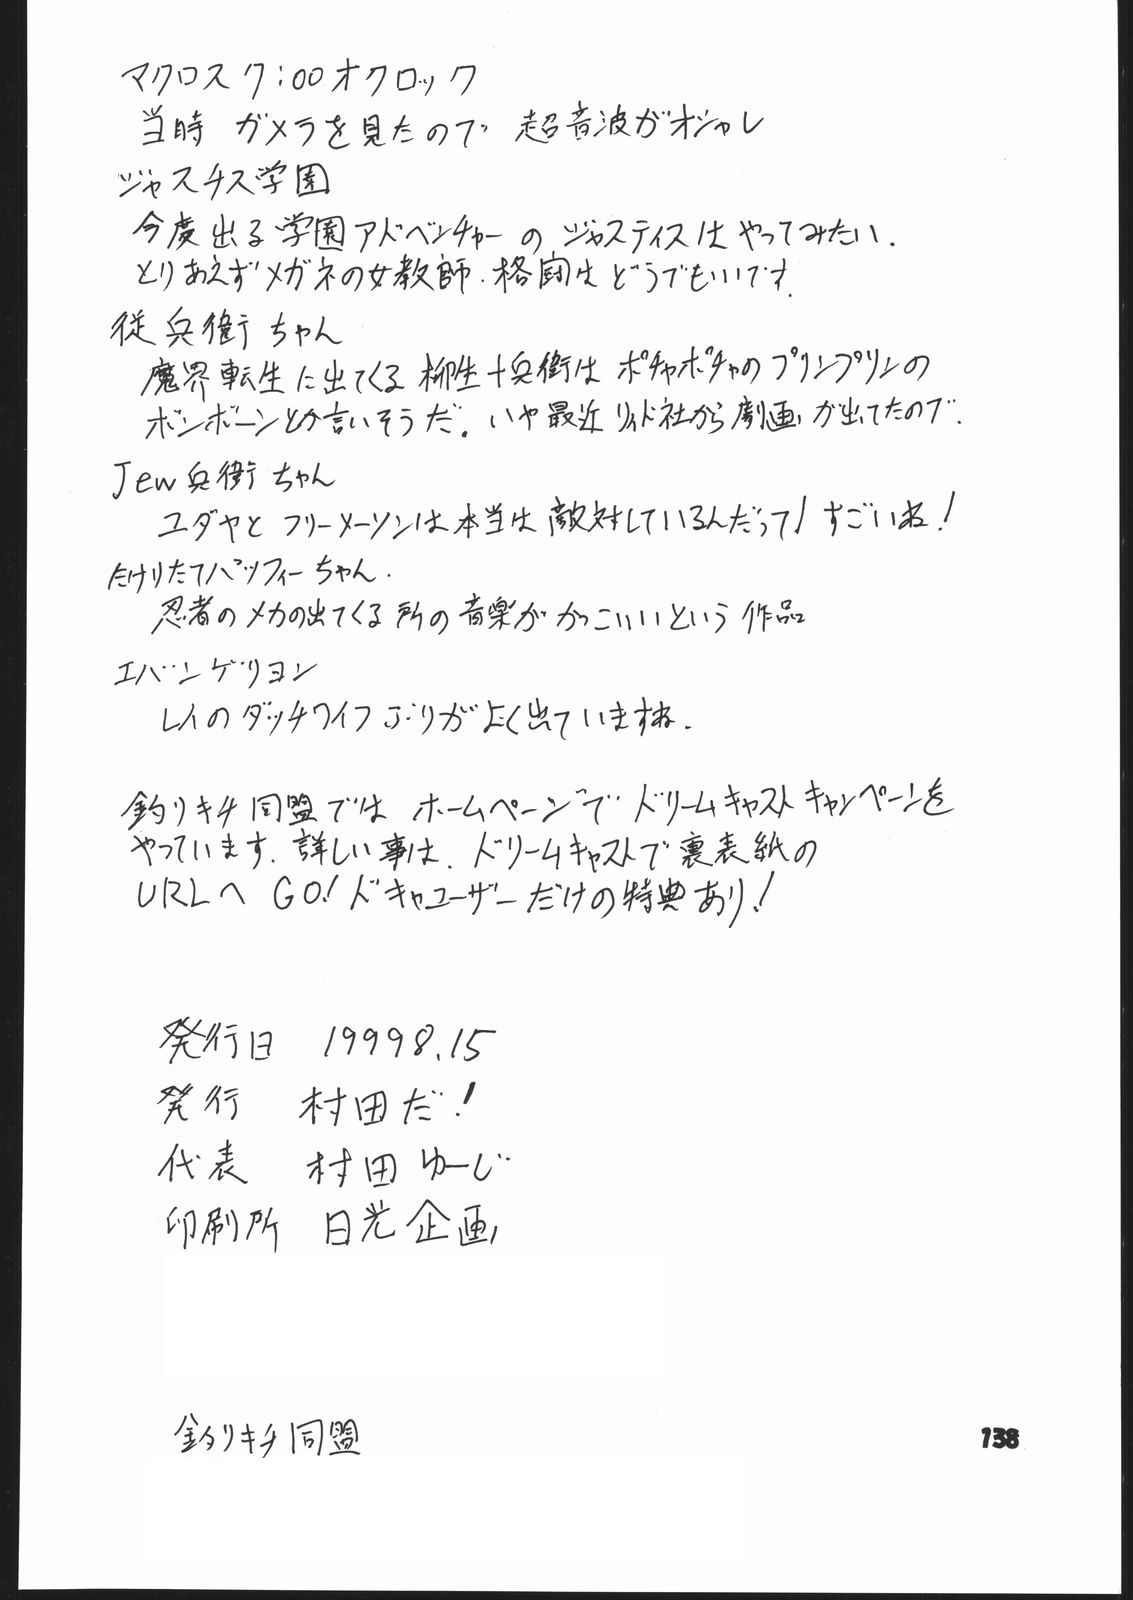 マクロス7:00オクロック
当時 ガメラを見たので 超音波がオシャレ
ジャスチス学園
今度出る学園アドベンチャーの ジャスティスは やってみたい.
とりあえずメガネの女教師. 格闘はどうでもいいです.
従兵衛ちゃん
魔界転生に出てくる柳生十兵衛は ポチャポチャのプリンプリンの
ボンボーンとか言いそうだ. いや最近リイド社から劇画が出てたので.
Jew兵衛ちゃん
ユダヤと フリーメーソンは本当は敵対しているんだって! すごいね!
たけりたてパッフィーちゃん.
忍者のメカの出てくる所の音楽が かっこいいという 作品
エバンゲリヨン
レイのダッチワイフぶりがよく出ていますね.
釣りキチ同盟では ホームページで ドリームキャストキャンペーンを
やっています. 詳しい事は. ドリームキャストで裏表紙の
URLへ GO! ドキャユーザーだけの特典あり!
発行日 19998.15
発行 村田だ!
代表 村田ゆーじ
印刷所 日光企画
釣りキチ同盟
138